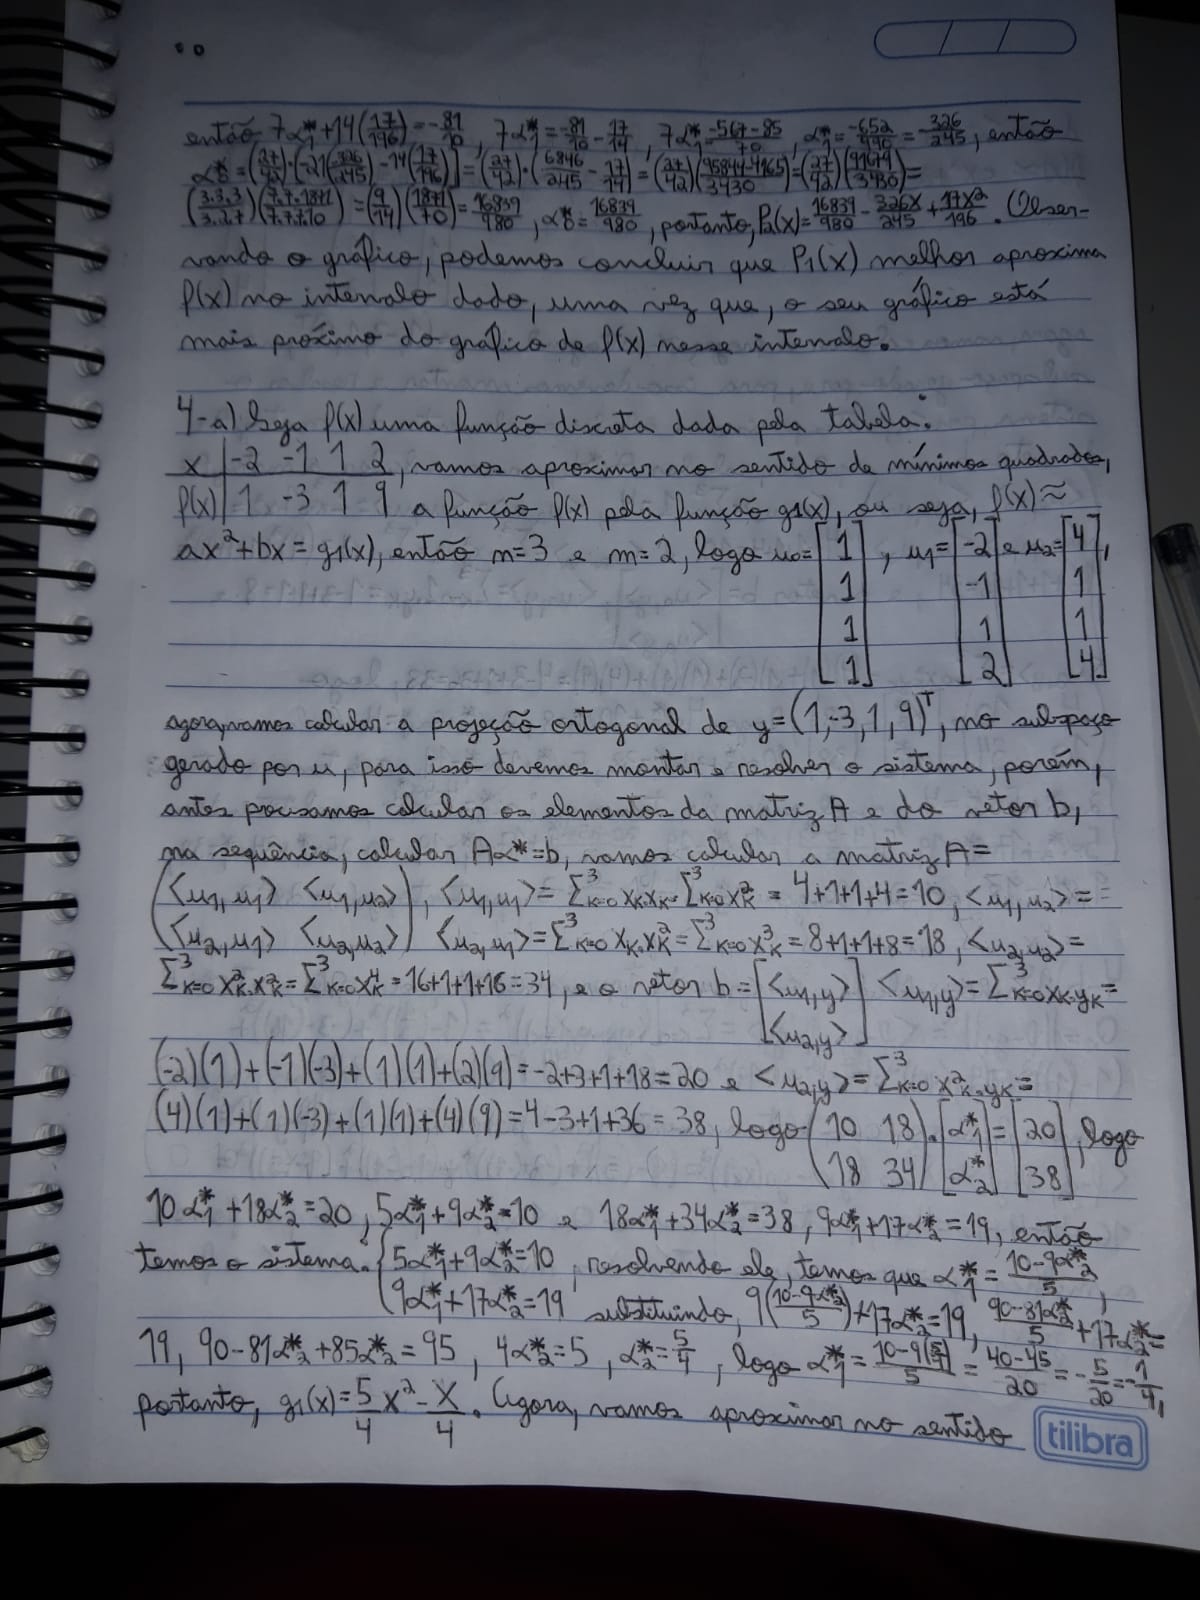 então 7α₁*+14(17/196)=-81/10, 7α₁*=-81/10-17/14, 7α₁*=-567-85/70, α₁*=-652/490=-326/245, então
α₀*=(27/42)·[-21(-326/245)-14(17/196)]=(27/42)·(6846/245-17/14)=(27/42)(95844-4165/3430)=(27/42)(91679/3430)=
(3.3.3/3.2.7)(7.7.1871/7.7.7.10)=(9/14)(1871/70)=16839/980, α₀*=16839/980, portanto, P₂(x)=16839/980-326x/245+17x²/196. Obser-
vando o gráfico, podemos concluir que P₁(x) melhor aproxima
f(x) no intervalo dado, uma vez que, o seu gráfico está
mais próximo do gráfico de f(x) nesse intervalo.
4-a) Seja f(x) uma função discreta dada pela tabela:
x | -2 -1 1 2, vamos aproximar no sentido de mínimos quadrados,
f(x) | 1 -3 1 9 a função f(x) pela função g₁(x), ou seja, f(x)≈
ax²+bx=g₁(x), então m=3 e m=2, logo u₀=[1 1 1 1], u₁=[-2 -1 1 2] e u₂=[4 1 1 4],
agora, vamos calcular a projeção ortogonal de y=(1,-3,1,9)ᵀ, no subspaço
gerado por u, para isso devemos montar e resolver o sistema, porém,
antes precisamos calcular os elementos da matriz A e do vetor b,
na sequência, calcular Aα*=b, vamos calcular a matriz A=
(<u₁,u₁> <u₁,u₂>), <u₁,u₁>=Σ³k=0 xk.xk=Σ³k=0 x²k=4+1+1+4=10, <u₁,u₂>=
(<u₂,u₁> <u₂,u₂>) <u₂,u₁>=Σ³k=0 xk.x²k=Σ³k=0 x³k=8+1+1+8=18, <u₂,u₂>=
Σ³k=0 x²k.x²k=Σ³k=0 x⁴k=16+1+1+16=34, e o vetor b=[<u₁,y> <u₂,y>] <u₁,y>=Σ³k=0 xk.yk=
(-2)(1)+(-1)(-3)+(1)(1)+(2)(9)=-2+3+1+18=20 e <u₂,y>=Σ³k=0 x²k.yk=
(4)(1)+(1)(-3)+(1)(1)+(4)(9)=4-3+1+36=38, logo (10 18 18 34).[α₁* α₂*]=[20 38], logo
10α₁*+18α₂*=20, 5α₁*+9α₂*=10 e 18α₁*+34α₂*=38, 9α₁*+17α₂*=19, então
temos o sistema: {5α₁*+9α₂*=10 9α₁*+17α₂*=19, resolvendo ele, temos que α₁*=10-9α₂*/5,
substituindo, 9(10-9α₂*/5)+17α₂*=19, 90-81α₂*/5+17α₂*=
19, 90-81α₂*+85α₂*=95, 4α₂*=5, α₂*=5/4, logo α₁*=10-9(5/4)/5=40-45/20=-5/20=-1/4,
portanto, g₁(x)=5/4x²-x/4. Agora, vamos aproximar no sentido
tilibra